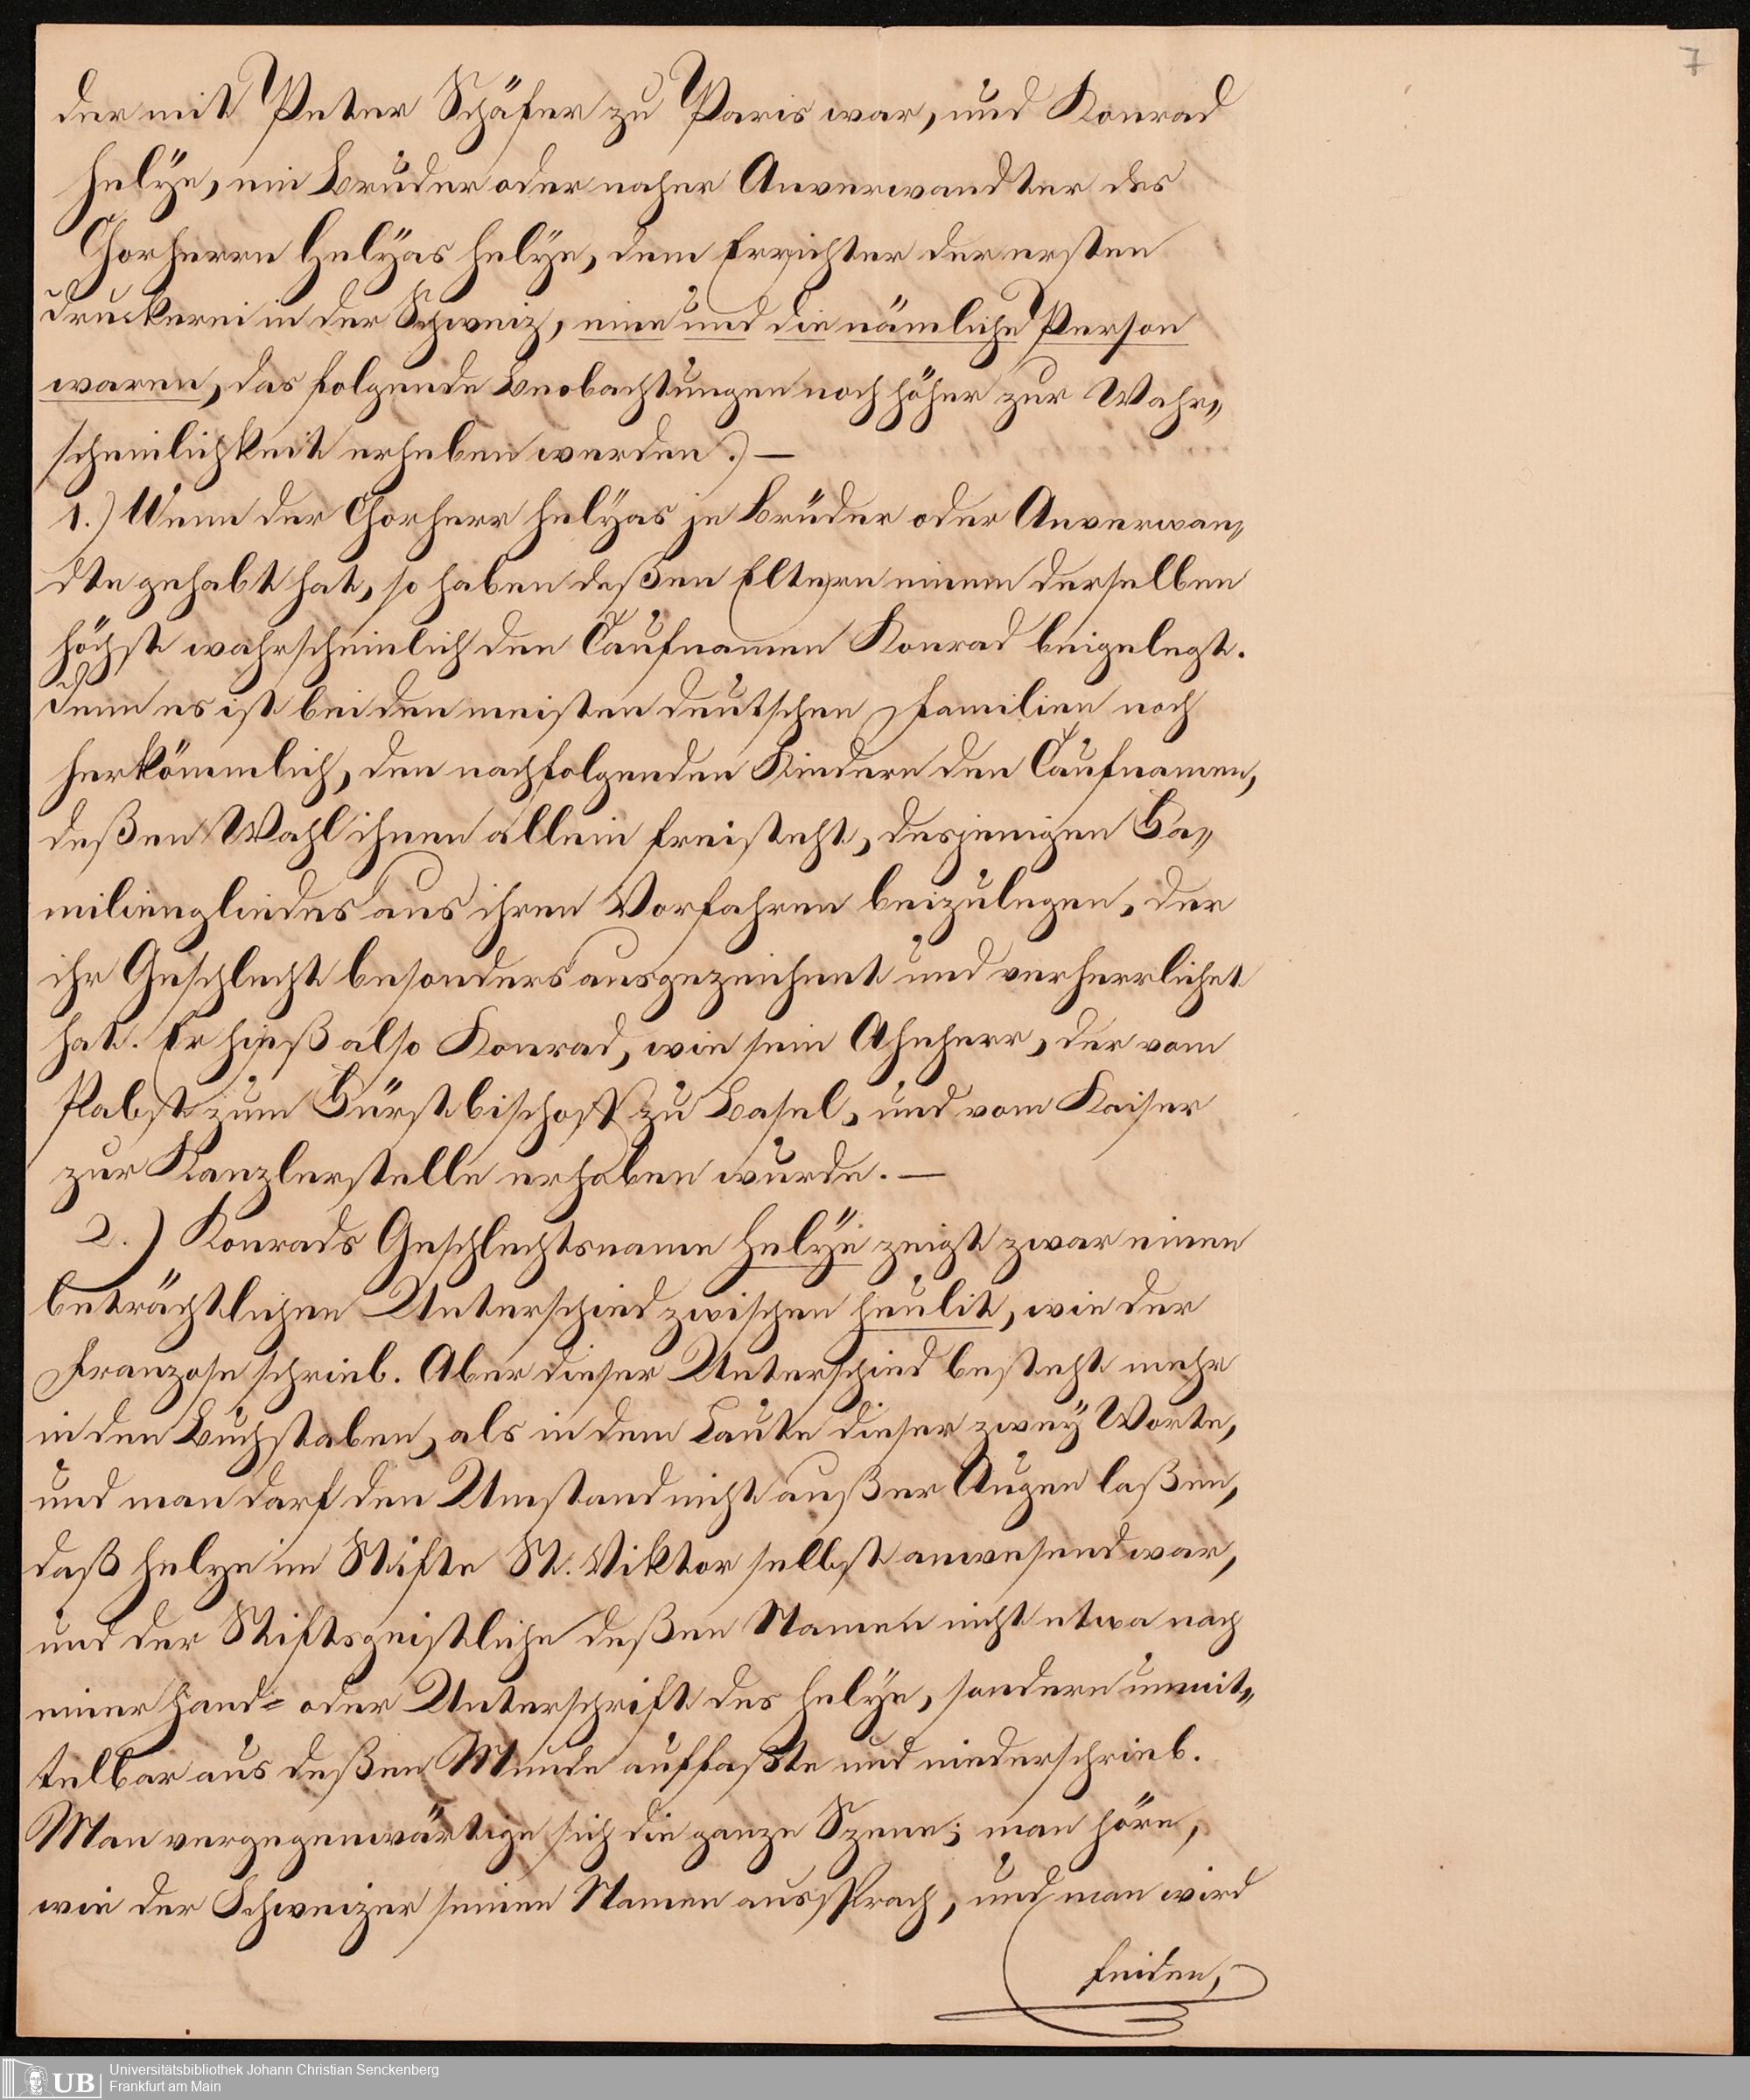 7
der mit Peter Schäfer zu Paris war, und Konrad
Helÿe, ein Bruder oder naher Anverwandter des
Chorherrn Helÿas Helÿe, dem Errichter der ersten
Druckerei in der Schweiz, eine und die nämliche Person
waren, das folgende Beobachtungen noch höher zur Wahr„
scheinlichkeit erheben werden.) —
1.) Wenn der Chorherr Helÿas je Brüder oder Anverwan„
dte gehabt hat, so haben deßen Eltern einem derselben
höchst wahrscheinlich den Taufnamen Konrad beigelegt.
Denn es ist bei den meisten deutschen Familien noch
herkömmlich, den nachfolgenden Kindern den Taufnamen,
deßen Wahl ihnen allein freisteht, desjenigen Fa„
miliengliedes aus ihren Vorfahren beizulegen, der
ihr Geschlecht besonders ausgezeichnet und verherrlichet
hat. Er hieß also Konrad, wie sein Ahnherr, der vom
Pabst zum Fürstbischoff zu Basel, und vom Kaiser
zur Kanzlerstelle erhoben wurde. —
2.) Konrads Geschlechtsname Helÿe zeigt zwar einen
beträchtlichen Unterschied zwischen Heulit, wie der
Franzose schrieb. Aber dieser Unterschied besteht mehr
in den Buchstaben, als in dem Laute dieser zweÿ Worte,
und man darf den Umstand nicht außer Augen laßen,
daß Helye im Stifte St. Viktor selbst anwesend war,
und der Stiftsgeistliche deßen Namen nicht etwa nach
einer Hand- oder Unterschrift des Helÿe, sondern unmit„
telbar aus deßen Munde auffaßte und niederschrieb.
Man vergegenwärtige sich die ganze Szene; man höre,
wie der Schweizer seinen Namen aussprach, und man wird
finden,
UB
Universitätsbibliothek Johann Christian Senckenberg
Frankfurt am Main